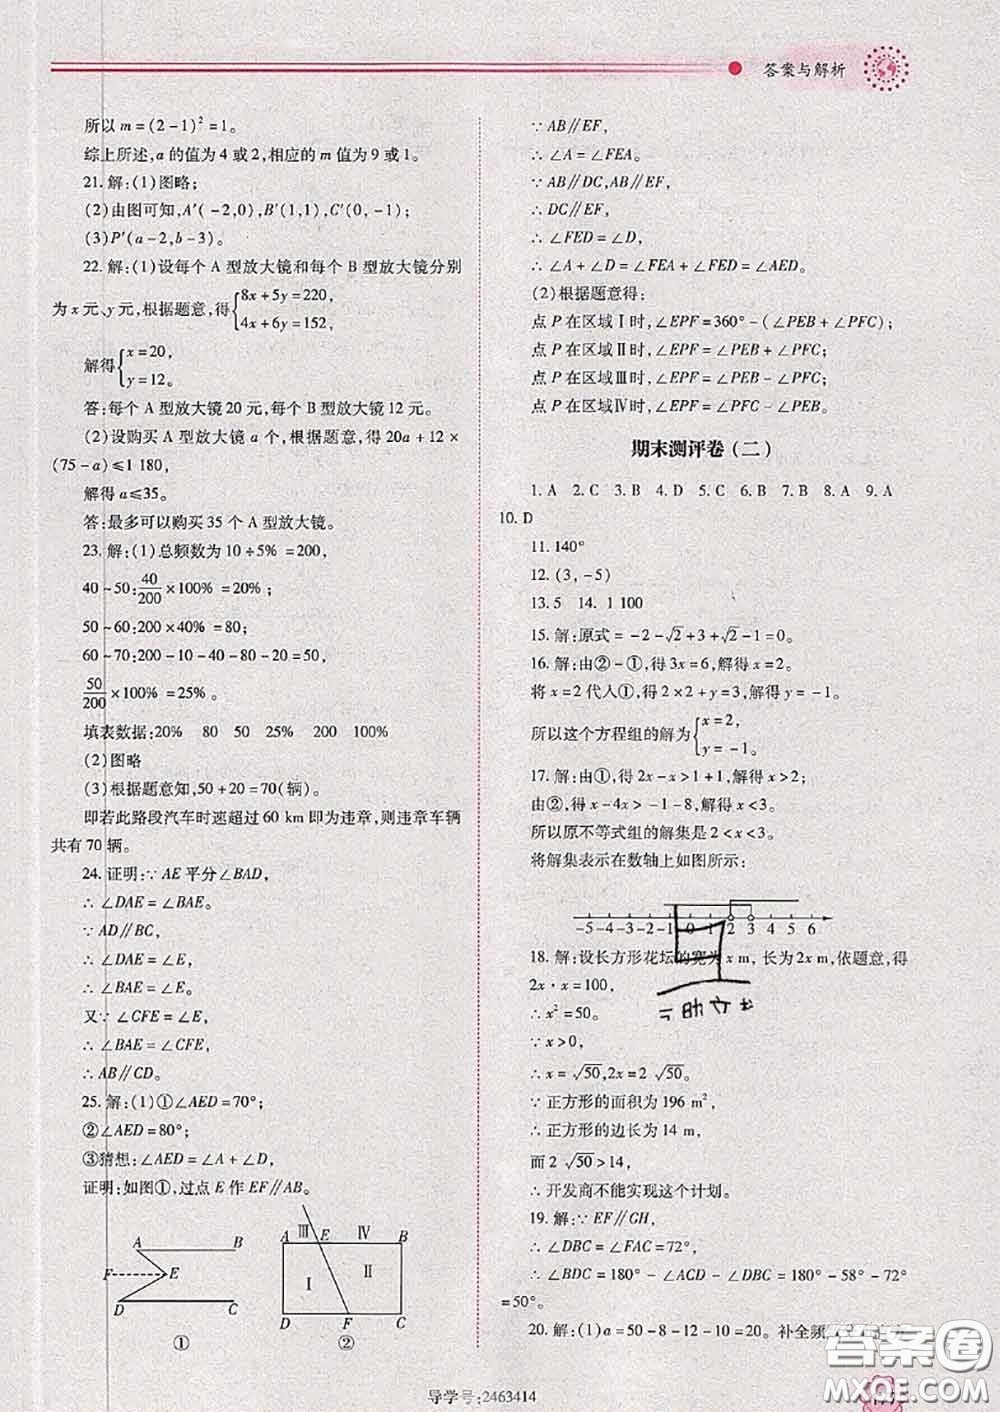 答案与解析
所以 m=(2-1)²=1。
综上所述,a 的值为 4 或 2,相应的 m 值为 9 或 1。
21. 解:(1)图略;
(2)由图可知,A′(-2,0),B′(1,1),C′(0,-1);
(3)P′(a-2,b-3)。
22. 解:(1)设每个 A 型放大镜和每个 B 型放大镜分别
为 x 元、y 元,根据题意,得{8x+5y=220,
4x+6y=152,
解得{x=20,
y=12。
答:每个 A 型放大镜 20 元,每个 B 型放大镜 12 元。
(2)设购买 A 型放大镜 a 个,根据题意,得 20a+12×
(75-a)≤1 180,
解得 a≤35。
答:最多可以购买 35 个 A 型放大镜。
23. 解:(1)总频数为 10÷5%=200,
40~50:40/200×100%=20%;
50~60:200×40%=80;
60~70:200-10-40-80-20=50,
50/200×100%=25%。
填表数据:20% 80 50 25% 200 100%
(2)图略
(3)根据题意知,50+20=70(辆)。
即若此路段汽车时速超过 60 km 即为违章,则违章车辆
共有 70 辆。
24. 证明:∵AE 平分∠BAD,
∴∠DAE=∠BAE。
∵AD∥BC,
∴∠DAE=∠E,
∴∠BAE=∠E。
又∵∠CFE=∠E,
∴∠BAE=∠CFE,
∴AB∥CD。
25. 解:(1)①∠AED=70°;
②∠AED=80°;
③猜想:∠AED=∠A+∠D,
证明:如图①,过点 E 作 EF∥AB。
A B
F E
D C
①
A Ⅲ E Ⅳ B
Ⅰ Ⅱ
D F C
②
∵AB∥EF,
∴∠A=∠FEA。
∵AB∥DC,AB∥EF,
∴DC∥EF,
∴∠FED=∠D,
∴∠A+∠D=∠FEA+∠FED=∠AED。
(2)根据题意得:
点 P 在区域Ⅰ时,∠EPF=360°-(∠PEB+∠PFC);
点 P 在区域Ⅱ时,∠EPF=∠PEB+∠PFC;
点 P 在区域Ⅲ时,∠EPF=∠PEB-∠PFC;
点 P 在区域Ⅳ时,∠EPF=∠PFC-∠PEB。
期末测评卷(二)
1. A 2. C 3. B 4. D 5. C 6. B 7. B 8. A 9. A
10. D
11. 140°
12. (3,-5)
13. 5 14. 1 100
15. 解:原式=-2-√2+3+√2-1=0。
16. 解:由②-①,得 3x=6,解得 x=2。
将 x=2 代入①,得 2×2+y=3,解得 y=-1。
所以这个方程组的解为{x=2,
y=-1。
17. 解:由①,得 2x-x>1+1,解得 x>2;
由②,得 x-4x>-1-8,解得 x<3。
所以原不等式组的解集是 2<x<3。
将解集表示在数轴上如图所示:
-5 -4 -3 -2 -1 0 1 2 3 4 5 6
18. 解:设长方形花坛的宽为 x m, 长为 2x m,依题意,得
2x·x=100,
∴x²=50。
∵x>0,
∴x=√50,2x=2√50。
∵正方形的面积为 196 m²,
∴正方形的边长为 14 m,
而 2√50>14,
∴开发商不能实现这个计划。
19. 解:∵EF∥GH,
∴∠DBC=∠FAC=72°,
∴∠BDC=180°-∠ACD-∠DBC=180°-58°-72°
=50°。
20. 解:(1)a=50-8-12-10=20。补全频
导学号:2463414
答案圈
MXQE.COM